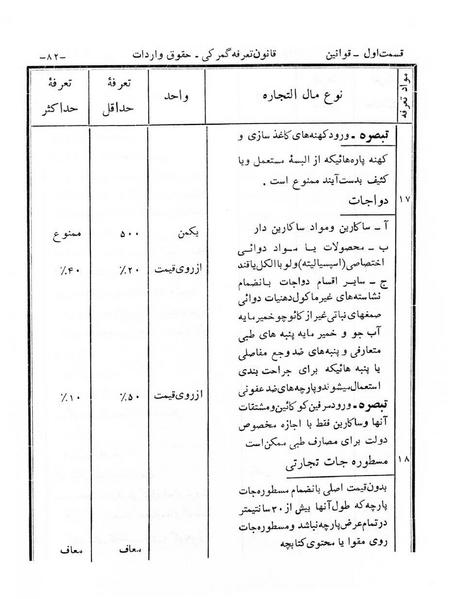 قسمت اول - قوانین قانون تعرفه گمرکی - حقوق واردات -۸۲-
مواد تعرفه نوع مال التجاره واحد تعرفهٔ حداقل تعرفهٔ حداکثر
تبصره - ورود کهنه‌های کاغذ سازی و
کهنه پاره‌هائیکه از البسهٔ مستعمل و یا
کثیف بدست آیند ممنوع است .
۱۷ دواجات
آ - ساکارین ومواد ساکارین دار یکمن ۵۰۰ ممنوع
ب - محصولات یا مواد دوائی
اختصاصی (اسپسیالیته) ولو با الکل یاقند ازروی قیمت ۲۰٪ ۴۰٪
ج - سایر اقسام دواجات بانضمام
نشاسته‌های غیرماکول دهنیات دوائی
صمغهای نباتی غیر از کائوچو خمیرمایه
آب جو و خمیر مایه پنبه های طبی
متعارفی و پنبه‌های ضدوجع مفاصلی
یا پنبه هائیکه برای جراحت بندی
استعمال میشوند و پارچه‌های ضدعفونی ازروی قیمت ۵۰٪ ۱۰٪
تبصره - ورود سرفین کوکائین و مشتقات
آنها وساکارین فقط با اجازه مخصوص
دولت برای مصارف طبی ممکن است
۱۸ مسطوره جات تجارتی
بدون قیمت اصلی بانضمام مسطوره‌جات
پارچه که طول آنها بیش از ۳۰ سانتیمتر
در تمام عرض پارچه نباشد و مسطوره‌جات
روی مقوا یا محتوی کتابچه معاف معاف